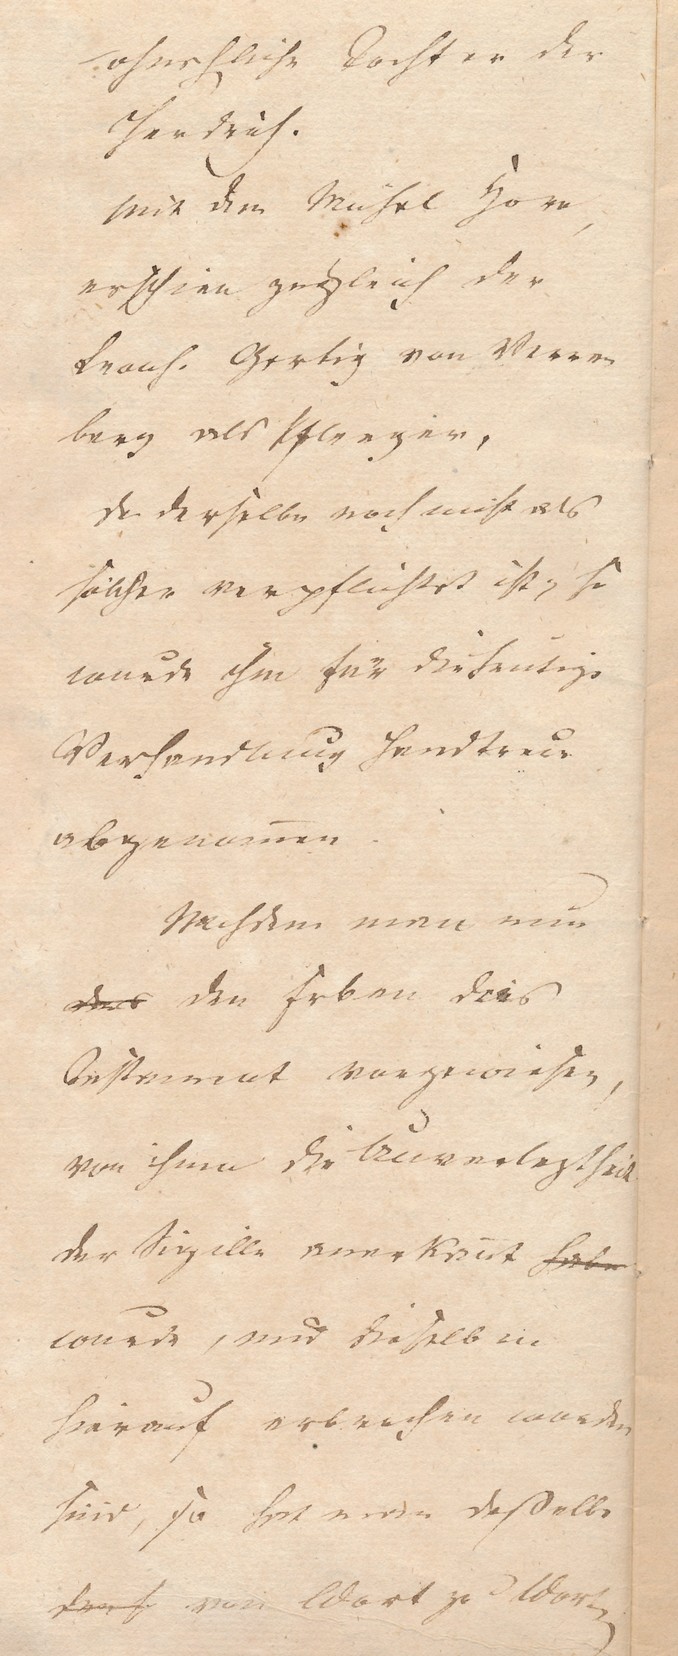 ohnehliche Tochter der
mit dem Michel Horn,
erschien zugleich der
von
berg als Pfleeger,
da derselbe noch nicht als
solcher verpflichtet ist, so
wurde ihm für die heutige
Verhandlung Handtreue
abgenommen.
Nachdem man nun
das den Erben das
Testament vorgewiesen,
von ihnen die Unverleztheit
der Sigille anerkannt habe
wurde, und dieselben
hierauf erbrochen worden
sind, so hat man dasselbe
von Wort zu Wort